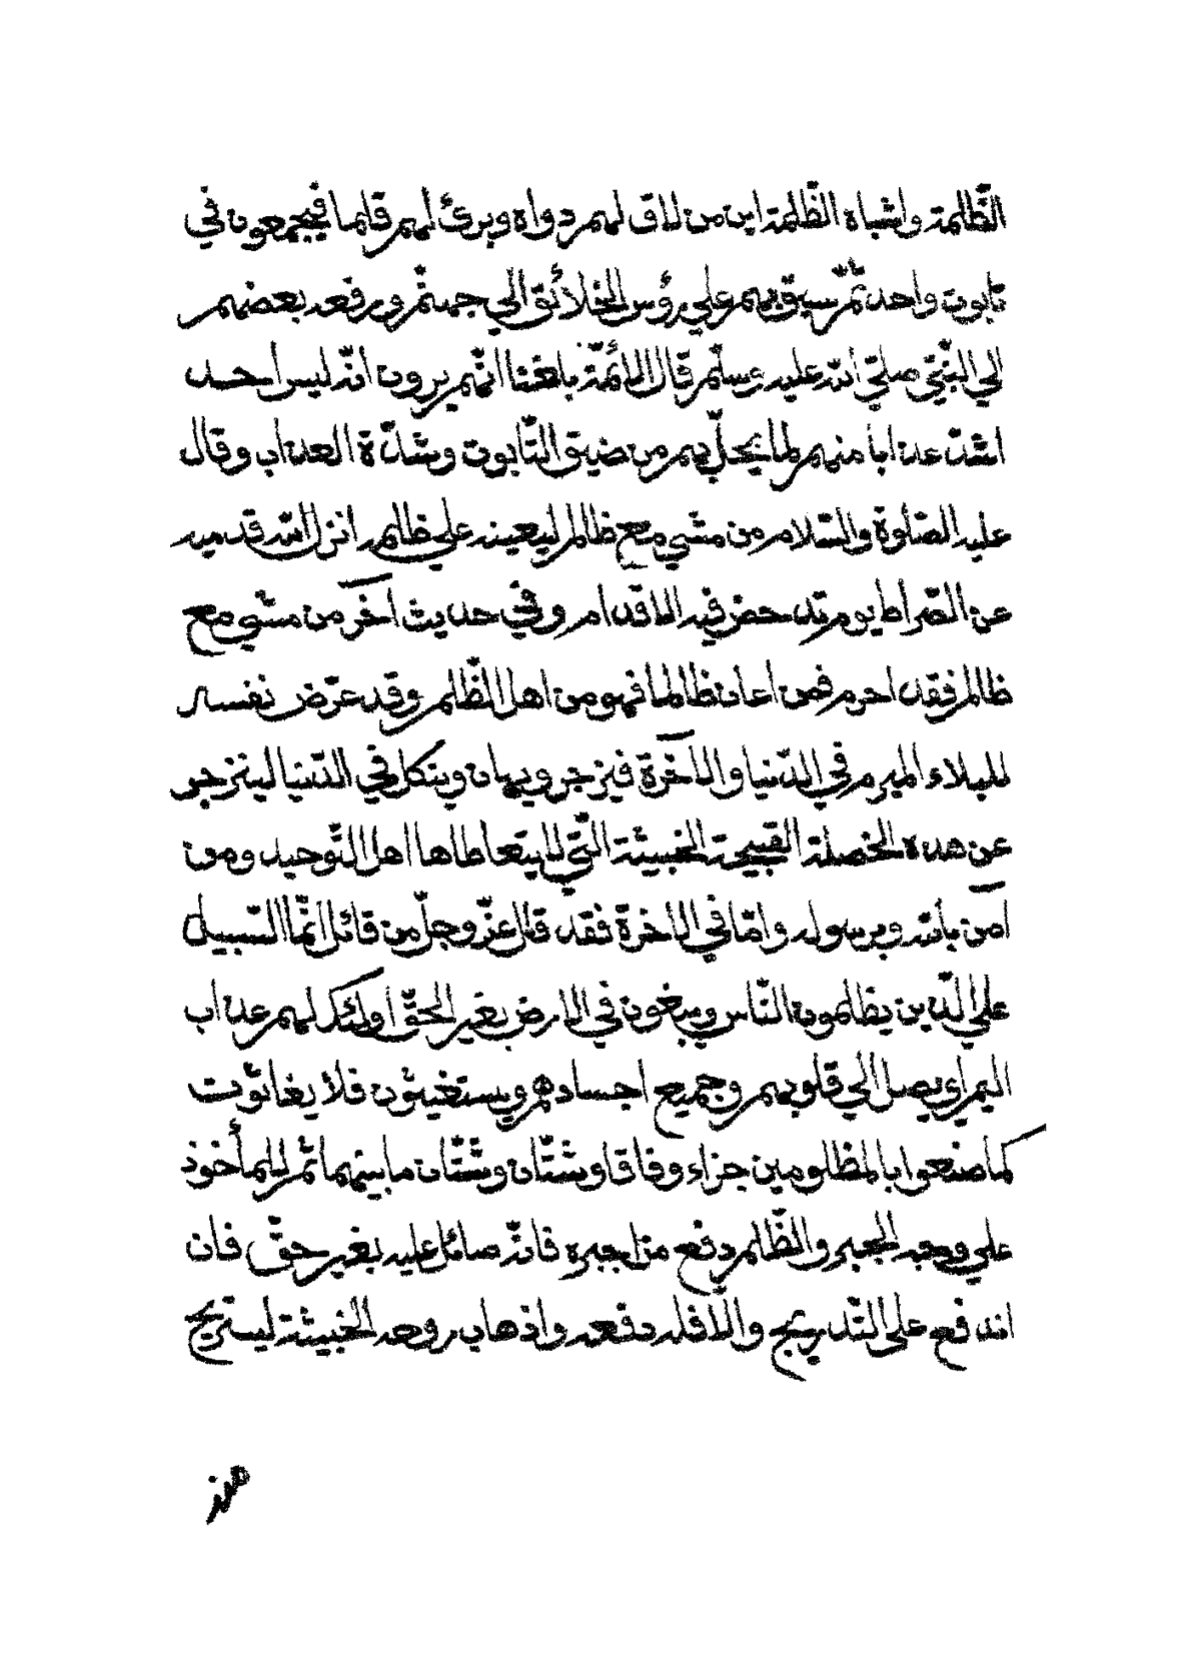 الظّالمة واشباه الظّالمة اين من لاق لهم دواة وبرئ لهم قلما فيجمعون في
تابوت واحد ثمّ سيق بهم علي رؤس الخلائق الي جهنّم ورفعه بعضهم
الي النّبيّ صلّي اللّه عليه وسلّم قال الأئمّة بلغنا انّهم يرون انّه ليس أحد
اشدّ عذابا منهم لما يحلّ بهم من ضيق التّابوت وشدّة العذاب وقال
عليه الصّلوة والسّلام من مشي مع ظالم ليعينه علي ظلمه ازلّ اللّه قدميه
عن الصّراط يوم تدحض فيه الاقدام وفي حديث آخر من مشي مع
ظالم فقد اجرم فمن اعان ظالما فهو من اهل الظّلم وقد عرّض نفسه
للبلاء المبرم في الدّنيا والآخرة فيزجر ويهان وينكل في الدّنيا لينزجر
عن هذه الخصلة القبيحة الخبيثة الّتي لا يتعاطاها اهل التّوحيد ومن
آمن باللّه وبرسوله وامّا في الآخرة فقد قال عزّ وجلّ من قائل انّما السّبيل
علي الّذين يظلمون النّاس ويبغون في الارض بغير الحقّ أولئك لهم عذاب
اليم اي يصل الي قلوبهم وجميع اجسادهم ويستغيثون فلا يغاثون
كما صنعوا بالمظلومين جزاء وفاقا وشتّان وشتّان ما بينهما ثمّ للمأخوذ
علي وجه الجبر والظّلم دفع من اجبره فانّه صائل عليه بغير حقّ فان
اندفع على التّدريج والّا فله دفعه واذهاب روحه الخبيثة ليستريح